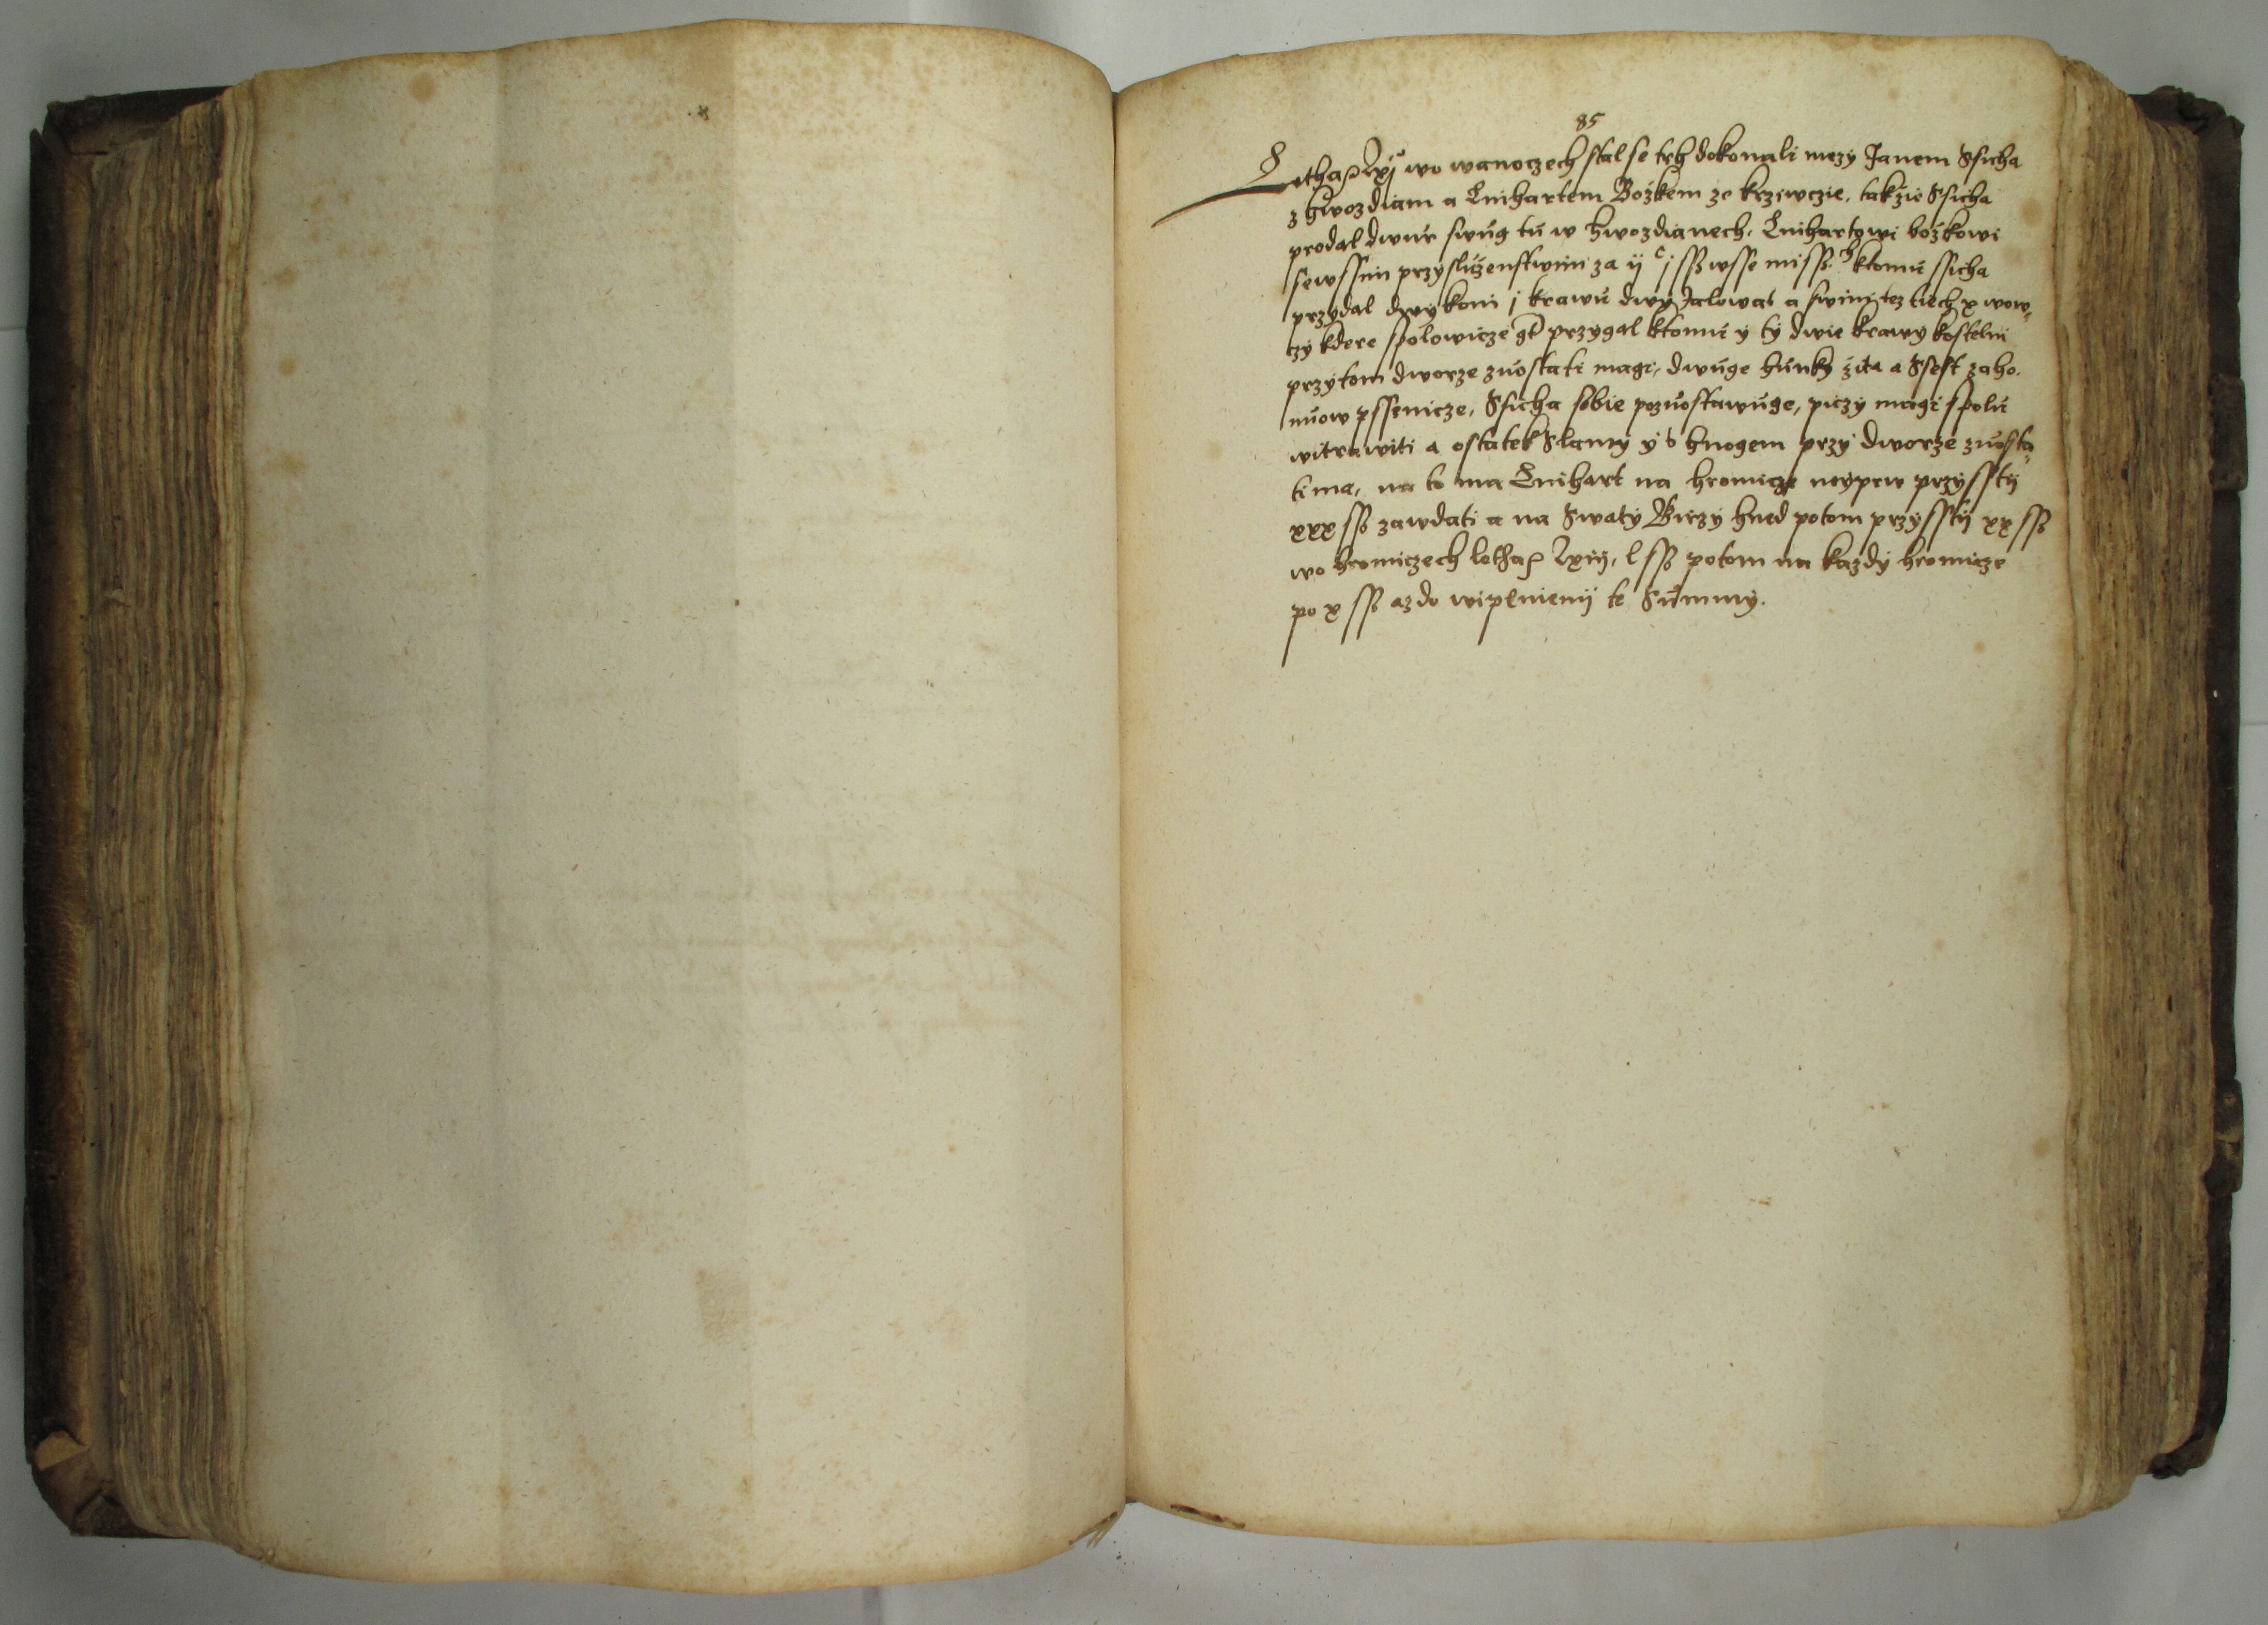 85
Letha Lxj° wo wanoczech stal se trh dokonali mezy Janem Ssicha
z hwozdian a Linhartem Božkem ze krziwczie, takžie Ssicha
prodal dwur swug tu w hwozdianech, Linhartowi božkowi
sewssim przysluženstwim za ij c j ssß wsse miss. ktomu ssicha
przydal dwy koni j krawu dwy Jalowas a swini tez tiech x wow,
czy kdere spolowicze gt przygal ktomu y ty dwie krawy kostelni
przytom dworze zuostati magi, dwuge hunky žita a Ssest zaho,
nuow pssenicze, Ssicha sobie pozuostawuge, piczy magi spolu
witrawiti a ostatek Slamy y s hnogem przy dworze zuosta,
ti ma, na to ma Linhart na hromicze neyprw przyssty
xxx ssß zawdati a na Swaty Girzy hned potom przyssty xx ssß
wo hromiczech letha Lxiij, l ssß potom na kazdy hromicze
po x ssß az do wiplnienij te Summy.